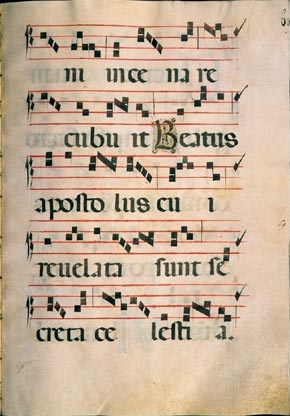 ni in ce na re
cubu it Beatus
aposto lus cu i
revelata sunt se
creta ce lesti a.